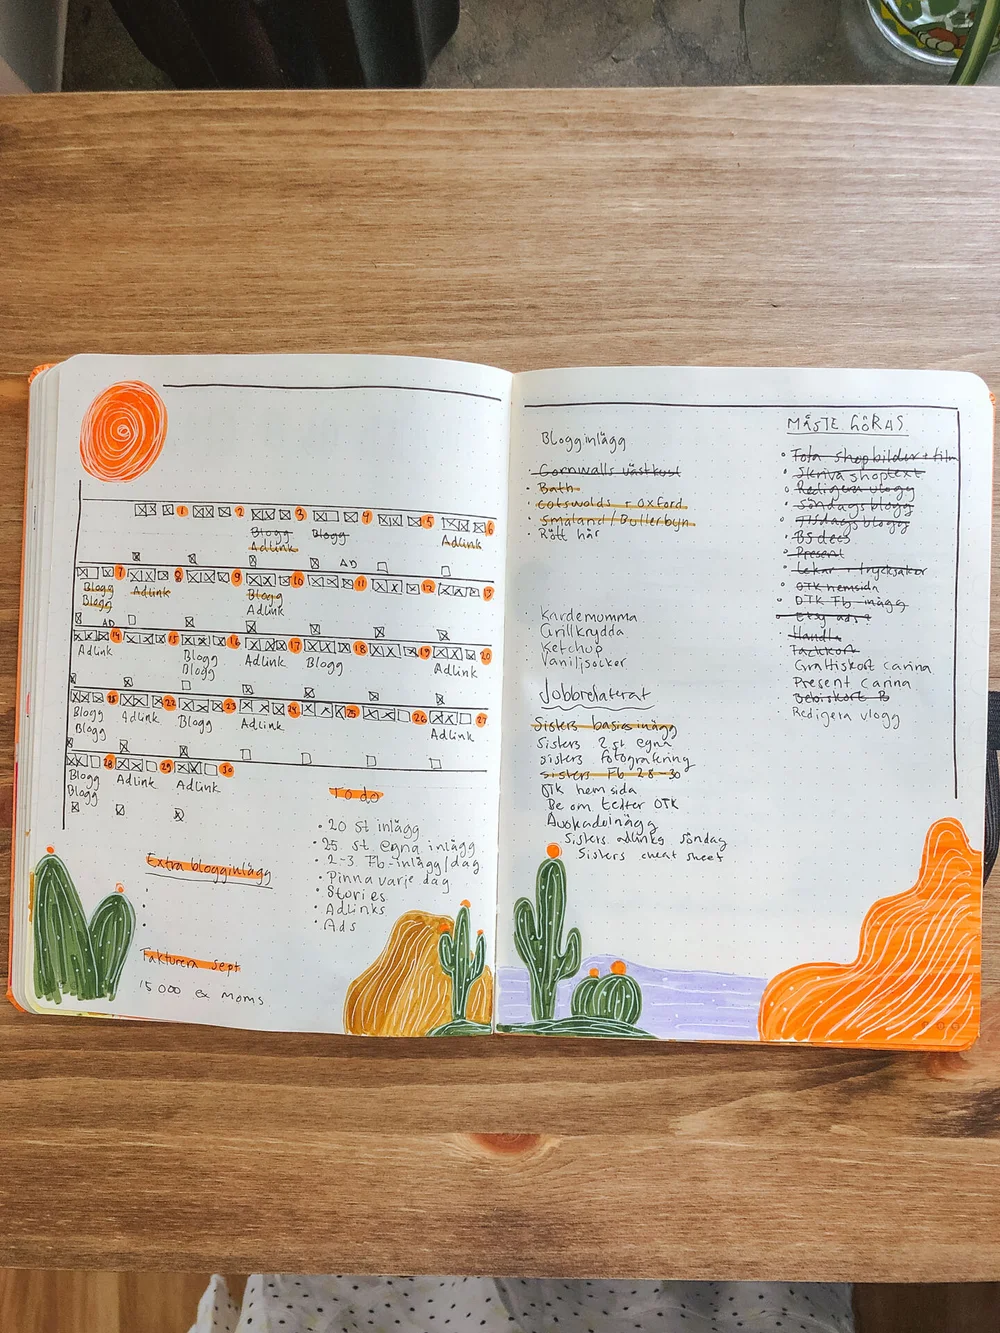 1 2 3 4 5 6
Blogg Blogg
Adlink Adlink
AD
7 8 9 10 11 12 13
Blogg Adlink Blogg
Blogg Adlink
AD
14 15 16 17 18 19 20
Adlink Blogg Adlink Blogg Adlink
Blogg
22 23 24 25 26 27
Blogg Adlink Blogg Adlink Adlink
Blogg
28 29 30
Blogg Adlink Adlink
Blogg
To do
• 20 st inlägg
• 25 st egna inlägg
• 2-3 Fb-inlägg/dag
• Pinna varje dag
• Stories
• Adlinks
• Ads
Extra blogginlägg
Fakturera sept
15 000 ex moms
Blogginlägg
Cornwalls västkust
• Bath
• Cotswolds + Oxford
• Småland/Bullerbyn
• Rött hår
Kardemumma
Grillkrydda
Ketchup
Vaniljsocker
Jobbrelaterat
Sisters basics inlägg
Sisters 2 st egna
Sisters fotografering
Sisters Fb 28-30
OTK hemsida
Be om texter OTK
Avokadoinlägg
Sisters adlinks söndag
Sisters cheat sheet
MÅSTE GÖRAS
• Fota shopbilder + film
• Skriva shoptext
• Redigera vlogg
• Söndagsblogg
• Tisdagsblogg
• Present
• OTK hemsida
• OTK Fb-inlägg
Handla
Tackkort
Grattiskort Carina
Present Carina
Bebiskort B
Redigera vlogg